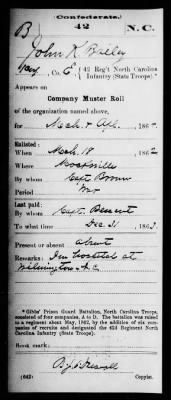 (Confederate.)
B 42 N.C.
John K Bailey
Co. E, 42 Reg't North Carolina
Infantry (State Troops).*
Appears on
Company Muster Roll
of the organization named above,
for Mch & Apl, 186
Enlisted:
When Mch 18, 186
Where Mocksville
By whom Capt Brown
Period War
Last paid:
By whom Capt.
To what time Dec 31, 1863.
Present or absent Absent
Remarks: In hospital at
Wilmington N.C.
*Gibbs' Prison Guard Battalion, North Carolina Troops,
consisted of four companies, A to D. The battalion was raised to
a regiment about May, 1862, by the addition of six com-
panies of recruits and designated the 42d Regiment North
Carolina Infantry (State Troops).
Book mark:
(642) Copyist.